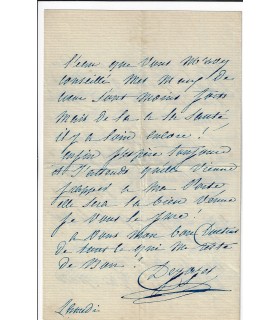 l'eau que vous m'avez
conseillé mes maux de
cœur sont moins forts
mais de la a la santé
il y a loin encore !
enfin j'espère toujours
et j'attends qu'elle vienne
frapper a ma porte
elle sera la bien venue
je vous le jure !
a vous mon bon
de tout ce qui me reste
de Bon !
Dejazet
Samedi